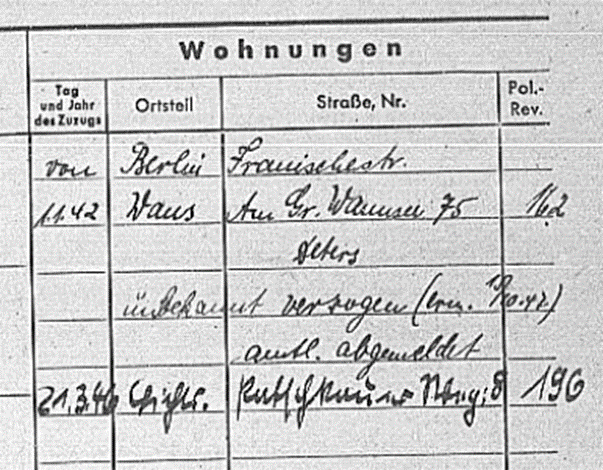 Wohnungen
Tag und Jahr des Zuzugs Ortsteil Straße, Nr. Pol.-Rev.
von Berlin
1.1.42 Wans Am Gr. Wannsee 75 162
Peters
unbekannt verzogen (erm. 10.42)
amtl. abgemeldet
21.3.46 Lichtr. 8 196